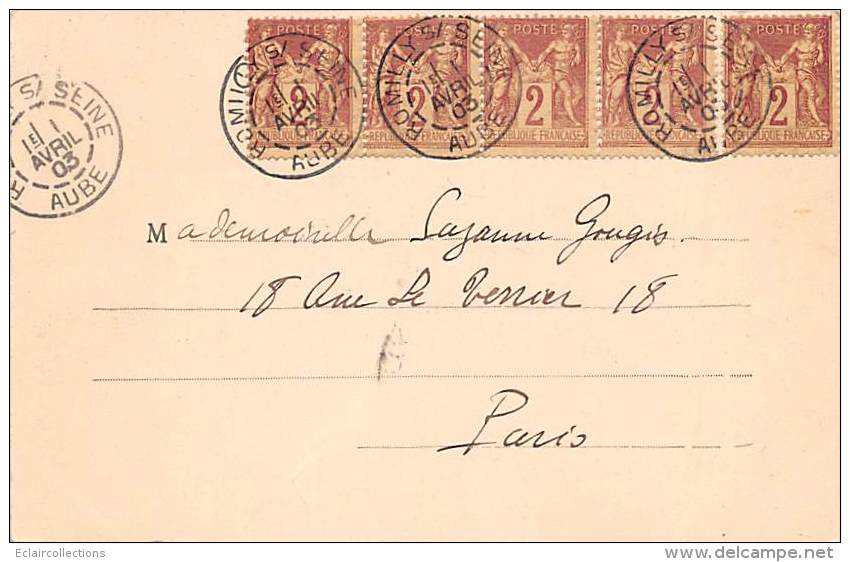 POSTE POSTE POSTE POSTE POSTE
2 2 2 2 2
REPUBLIQUE FRANÇAISE REPUBLIQUE FRANÇAISE REPUBLIQUE FRANÇAISE REPUBLIQUE FRANÇAISE REPUBLIQUE FRANÇAISE
ROMILLY S/ SEINE
1E 1
AVRIL
03
AUBE
ROMILLY S/ SEINE
1E 1
AVRIL
03
AUBE
ROMILLY S/ SEINE
1E 1
AVRIL
03
AUBE
S/ SEINE
1E 1
AVRIL
03
AUBE
Mademoiselle Suzanne Gougis.
18 Rue Le Verrier 18
Paris
Eclaircollections
http://www.delcampe.net